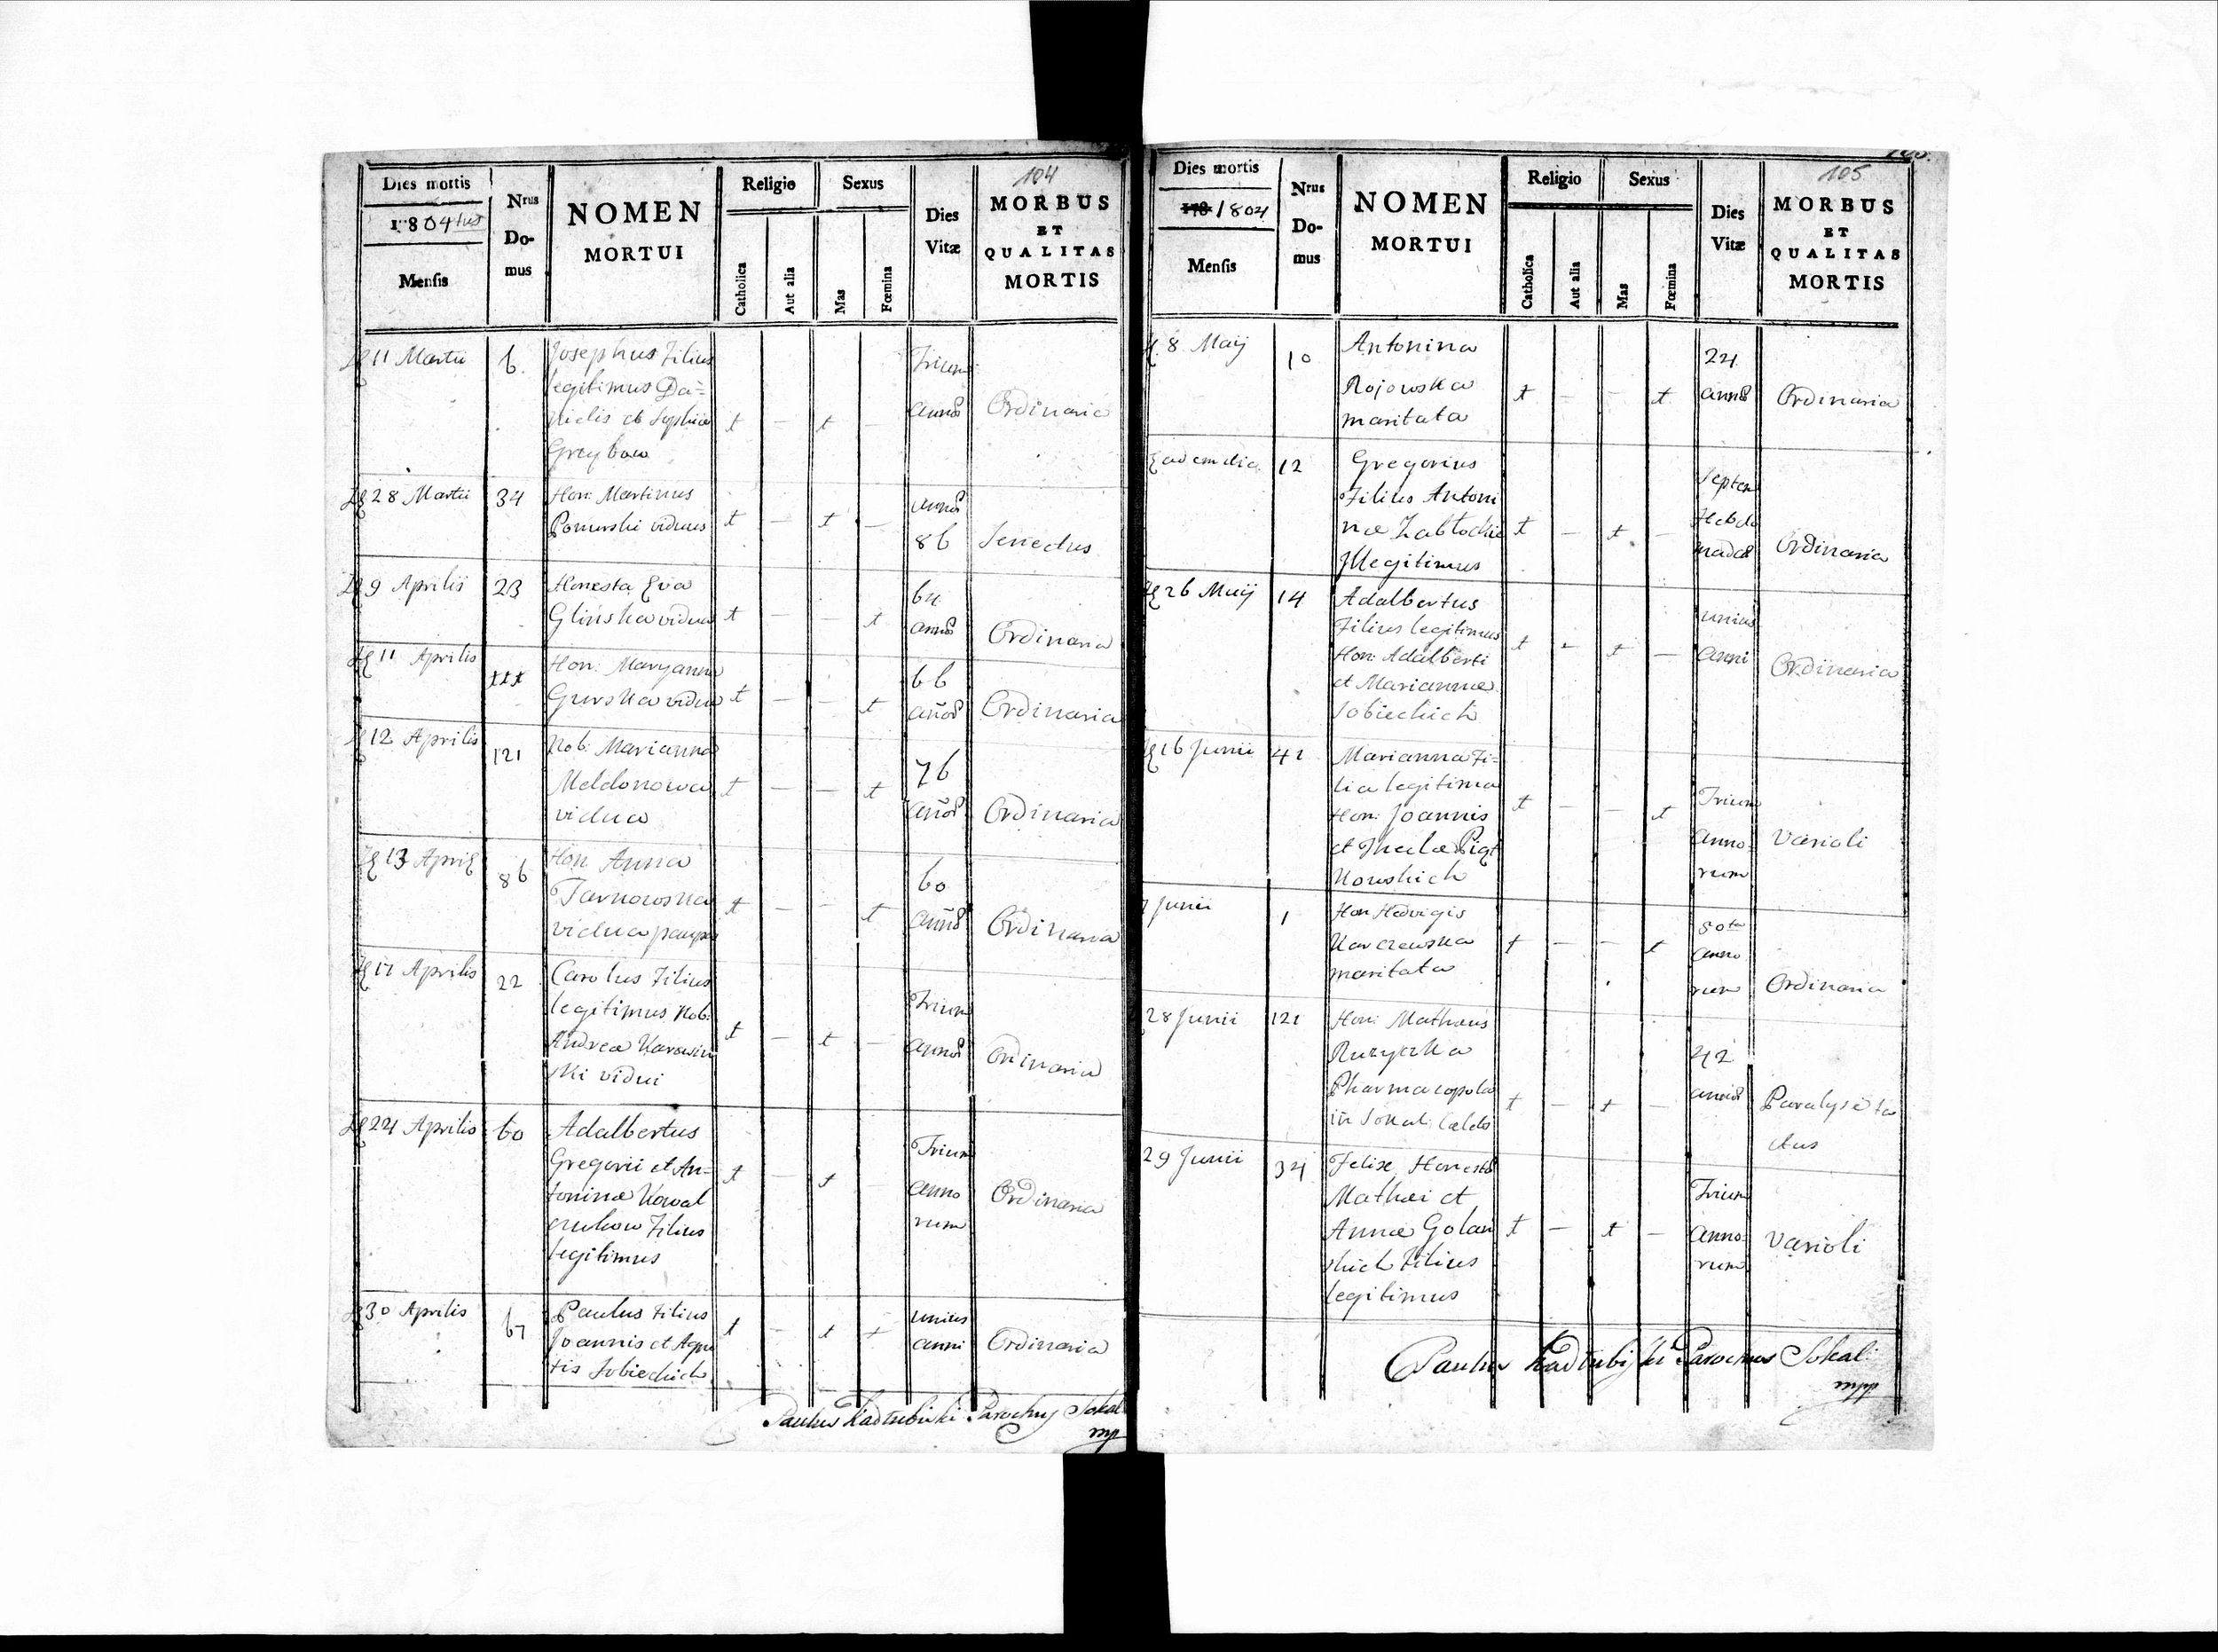 104
Dies mortis
1804tus
Mensis
Nrus
Do-
mus
NOMEN
MORTUI
Religio
Catholica
Aut alia
Sexus
Mas
Fœmina
Dies
Vitæ
MORBUS
ET
QUALITAS
MORTIS
11 Martii
6
Josephus Filius
legitimus Da=
nielis et Sophiæ
Ordinaria
28 Martii
34
Hon: Martinus
viduus
annos
86
Senectus
9 Aprilis
23
Honesta Eva
Glinska vidua
64
annos
Ordinaria
11 Aprilis
xxx
Hon: Maryanna
Gurska vidua
66
Ordinaria
12 Aprilis
121
Nob: Marianna
Meldonowa
vidua
76
Ordinaria
13 April
86
Hon Anna
Tarnowska
vidua
60
Ordinaria
17 Aprilis
22
Carolus Filius
legitimus Nob:
Andreæ
ski vidui
Trium
annos
Ordinaria
24 Aprilis
60
Adalbertus
Gregorii et An=
toninæ Kowal
czukow Filius
legitimus
Trium
anno
rum
Ordinaria
30 Aprilis
67
Paulus Filius
Joannis et Agne
tis Sobieckich
unius
anni
Ordinaria
Paulus Kadlubiski Parochus Sokal
mp
105
Dies mortis
178 1804
Mensis
Nrus
Do-
mus
NOMEN
MORTUI
Religio
Catholica
Aut alia
Sexus
Mas
Fœmina
Dies
Vitæ
MORBUS
ET
QUALITAS
MORTIS
8 Maij
10
Antonina
Rojowska
maritata
24
annos
Ordinaria
Eadem die
12
Gregorius
Filius Antoni
næ Zabłockie
Illegitimus
Septem
Hebdo
madas
Ordinaria
26 Maij
14
Adalbertus
Filius legitimus
Hon: Adalberti
et Mariannæ
Sobieckich
unius
anni
Ordinaria
16 Junii
41
Marianna Fi=
lia legitima
Hon: Joannis
et Theclæ Piąt
kowskich
Trium
anno=
rum
Varioli
Junii
1
Hon Hedvigis
Karczewska
maritata
50ta
anno
rum
Ordinaria
28 Junii
121
Hon: Mathæus
Ruzyczka
Pharmacopola
in Sokal
42
annos
Paralysi ta
ctus
29 Junii
34
Felix Honesto
Mathæi et
Annæ Golan
skich Filius
legitimus
Trium
anno=
rum
Varioli
Paulus Kadlubiski Parochus Sokal:
mpp